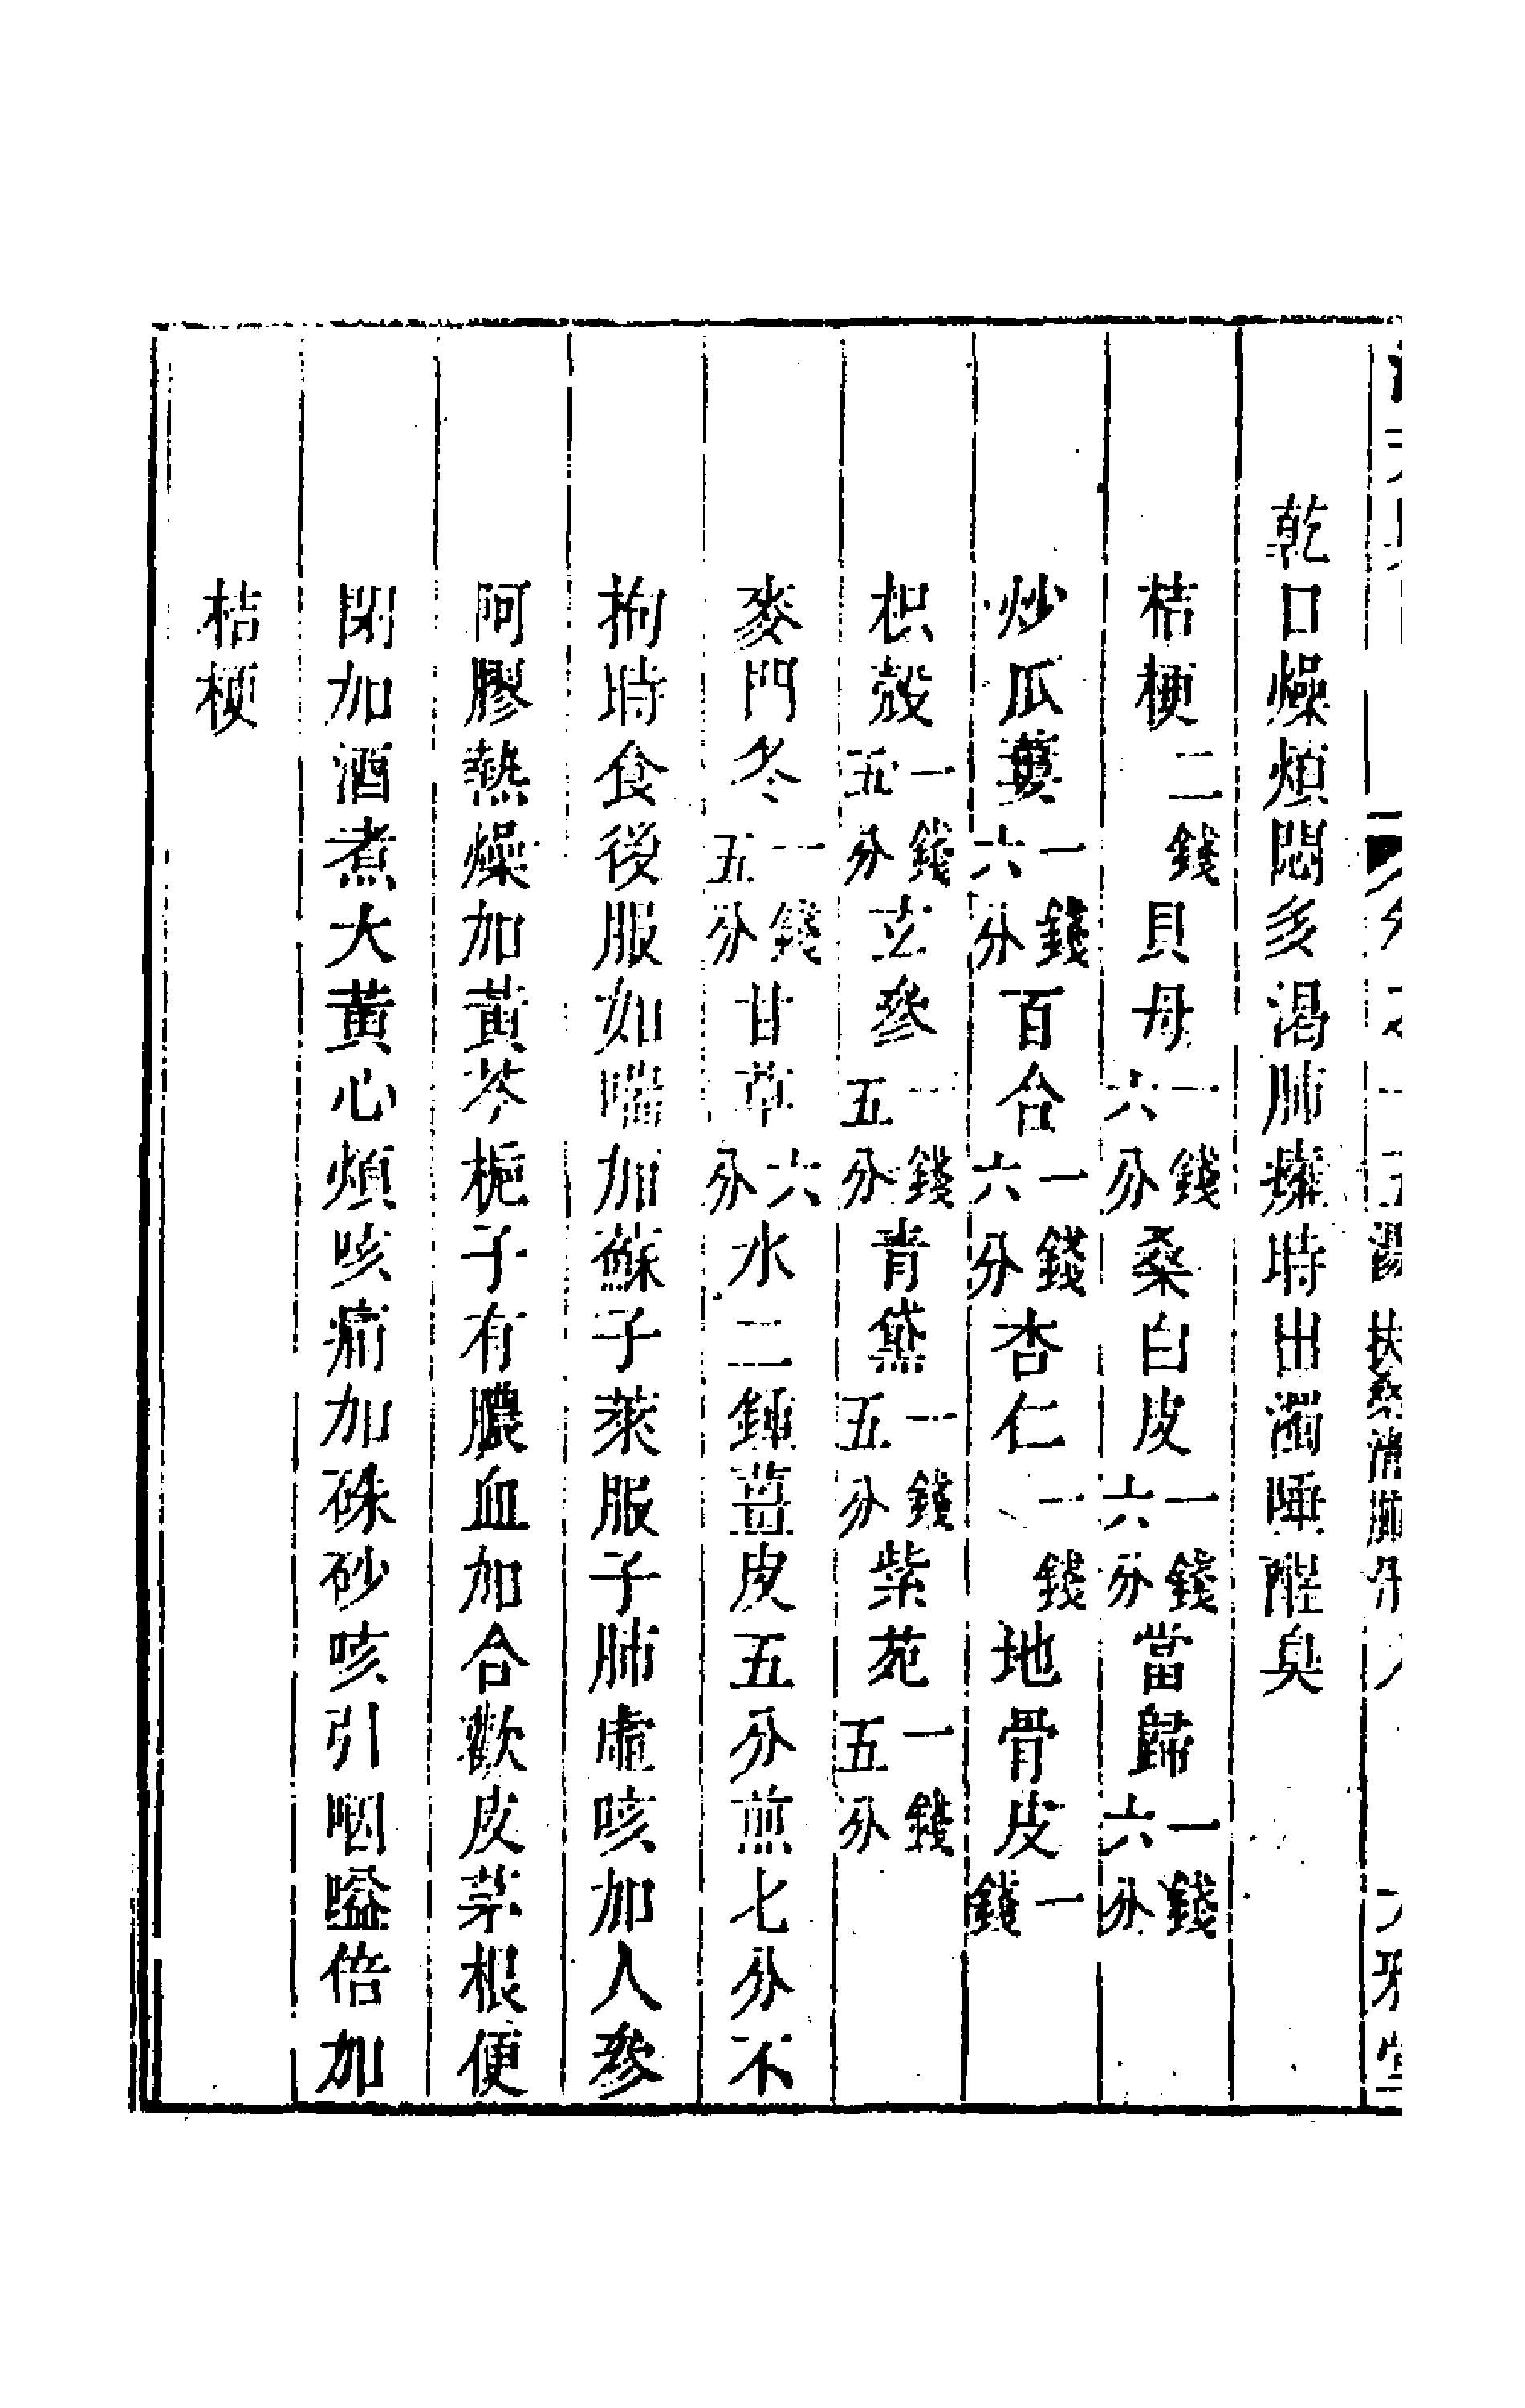 乾口燥煩悶多渴肺癰時出濁唾腥臭
桔梗二錢貝母一錢六分桑白皮一錢六分當歸一錢六分
炒瓜蔞一錢六分百合一錢六分杏仁一錢地骨皮一錢
枳殼一錢五分玄參一錢五分青黛一錢五分紫苑一錢五分
麥門冬一錢五分甘草六分水二鍾薑皮五分煎七分不
拘時食後服如喘加蘇子萊服子肺虛咳加人參
阿膠熱燥加黃芩梔子有膿血加合歡皮茅根便
閉加酒煮大黃心煩咳痛加硃砂咳引咽嗌倍加
桔梗